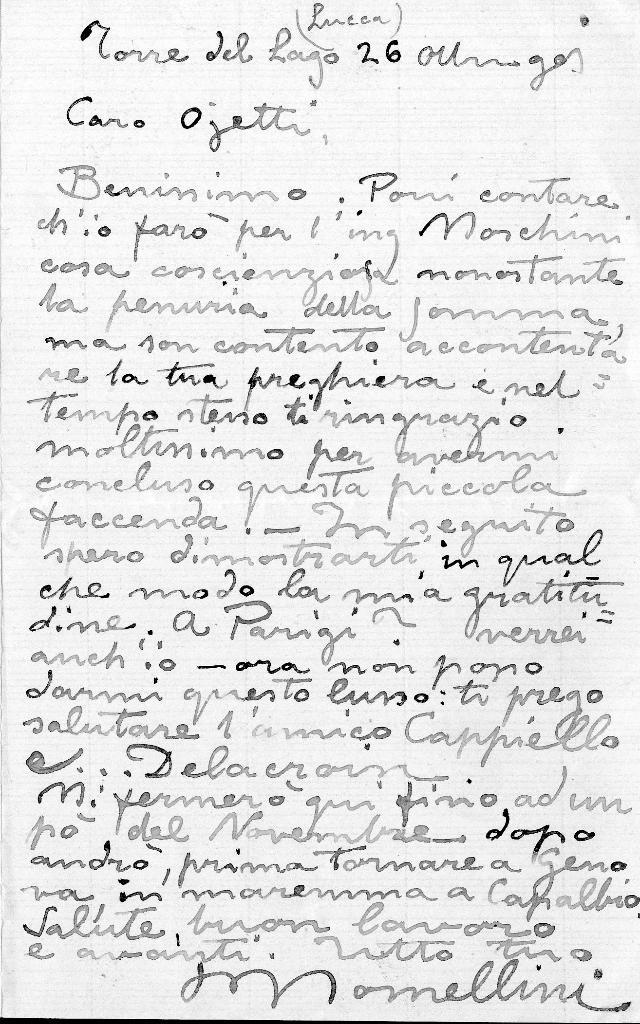 (Lucca)
Torre del Lago 26 Ottbre 905
Caro Ojetti,
Benissimo. Puoi contare
ch'io farò per l'ing Moschini
cosa coscienziosa nonostante
la penuria della somma,
ma son contento accontenta
re la tua preghiera e nel =
tempo stesso ti ringrazio
moltissimo per avermi
concluso questa piccola
faccenda. — In seguito
spero dimostrarti in qual
che modo la mia gratitu
dine. A Parigi? verrei =
anch'io — ora non posso
darmi questo lusso: ti prego
salutare l'amico Cappiello
e... Delacroix
Mi fermerò qui fino ad un
pò del Novembre dopo
andrò, prima tornare a Geno
va, in maremma a Capalbio
Salute, buon lavoro
e avanti. Tutto tuo
Nomellini